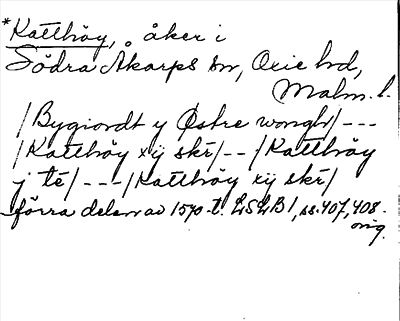 *Katthöy, åker i
Södra Åkarps sn, Oxie hd,
Malm. l.
/Bygiordt y Østre wongh/---
/Katthöy xij skr/--/Katthöy
y té/---/Katthöy xij skr/
förra delen av 1570-t. LSLB 1, ss. 407, 408.
orig.